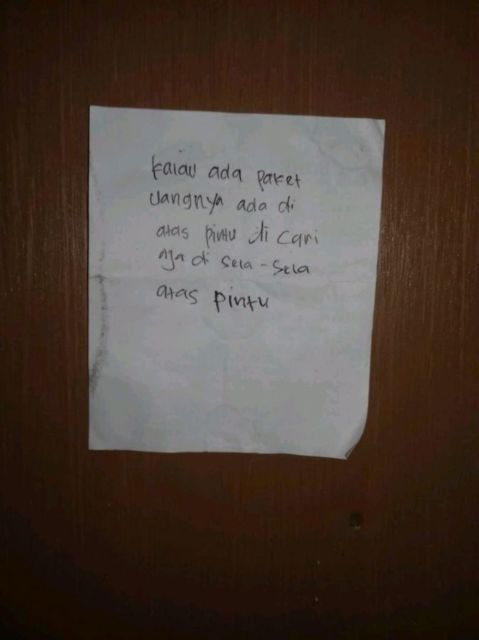 kalau ada paket
uangnya ada di
atas pintu di cari
aja di sela - sela
atas pintu